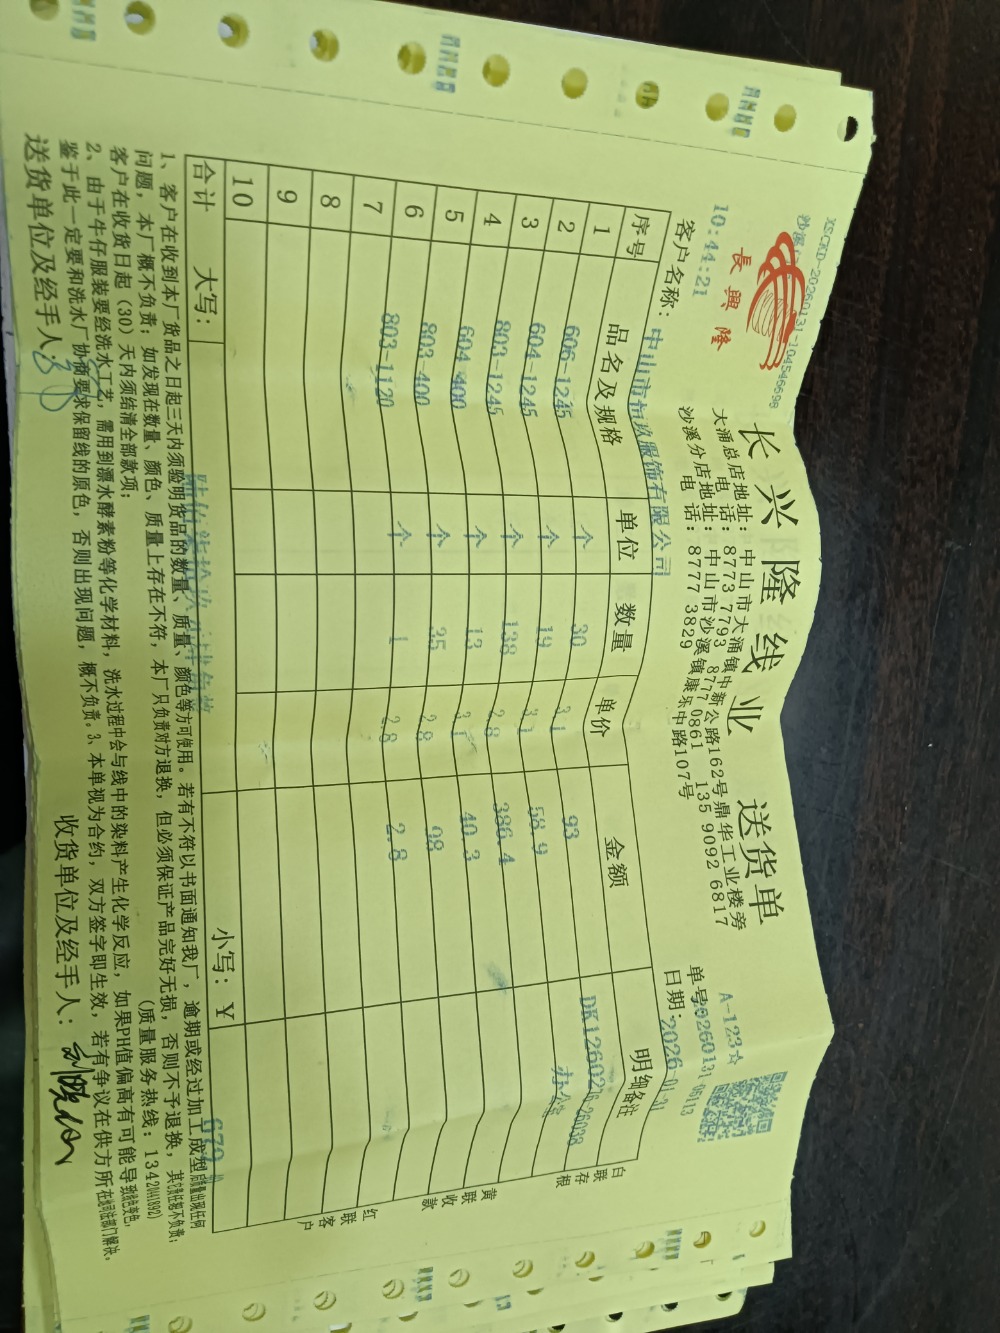 XSCKD-20260131-104546698
沙溪
10:44:21
長興隆
长兴隆线业 送货单
大涌总店地址：中山市大涌镇中新公路162号鼎华工业楼旁
电 话：8773 7793 8777 0861 135 9092 6817
沙溪分店地址：中山市沙溪镇康乐中路107号
电 话：8777 3829
A-123☆
单号:20260131-05113
客户名称：中山市裕玖服饰有限公司
日期:2026-01-31
序号 品名及规格 单位 数量 单价 金额 明细备注
1 606-1245 个 30 3.1 93 DK126027
2 604-1245 个 19 3.1 58.9
3 803-1245 个 138 2.8 386.4
4 604-400 个 13 3.1 40.3
5 803-400 个 35 2.8 98
6 803-1120 个 1 2.8 2.8
7
8
9
10
合计 大写： 小写：￥ 679
白联存根
黄联收款
红联客户
1、客户在收到本厂货品之日起三天内须验明货品的数量、质量、颜色等方可使用。若有不符以书面通知我厂，逾期或经过加工成型后质量出现任何
问题，本厂概不负责；如发现在数量、颜色、质量上存在不符，本厂只负责对方退换，但必须保证产品完好无损，否则不予退换，其它责任恕不负责；
客户在收货日起（30）天内须结清全部款项；（质量服务热线：13420441892）
2、由于牛仔服装要经洗水工艺，需用到漂水酵素粉等化学材料，洗水过程中会与线中的染料产生化学反应，如果PH值偏高有可能导致掉色变色，
鉴于此一定要和洗水厂协商要求保留线的原色，否则出现问题，概不负责。3、本单视为合约，双方签字即生效，若有争议在供方所在地司法部门解决。
送货单位及经手人： 收货单位及经手人：